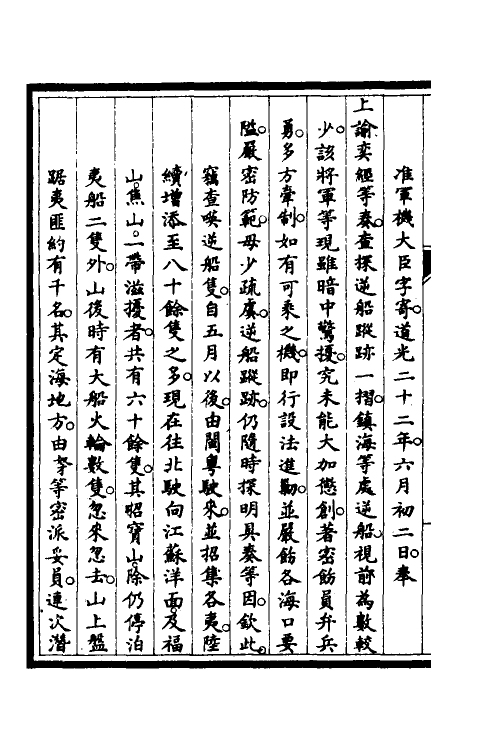 准軍機大臣字寄。道光二十二年。六月初二日。奉
上諭奕經等奏。查探逆船蹤跡一摺。鎮海等處逆船。視前為數較
少。該將軍等現雖暗中驚擾。究未能大加懲創。著密飭員弁兵
勇。多方牽制。如有可乘之機。即行設法進勦。並嚴飭各海口要
隘。嚴密防範。毋少疏虞。逆船蹤跡。仍隨時探明具奏等因。欽此。
竊查𠸄逆船隻。自五月以後。由閩粵駛來。並招集各夷。陸
續增添至八十餘隻之多。現在往北駛向江蘇洋面。及福
山。焦山。一帶滋擾者。共有六十餘隻。其昭寶山。除仍停泊
夷船二隻外。山後時有大船火輪數隻。忽來忽去。山上盤
踞夷匪約有千名。其定海地方。由拏等密派妥員。連次潛